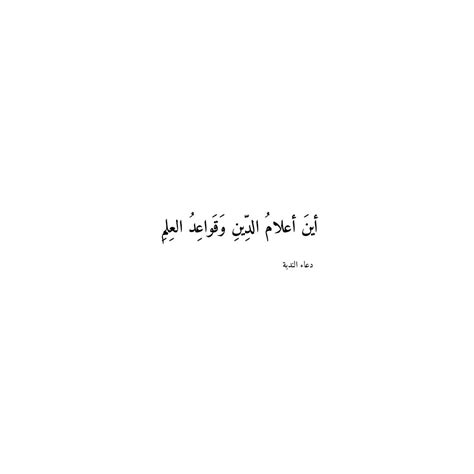 أينَ أعلامُ الدِّينِ وَقَواعِدُ العِلمِ
دعاء الندبة